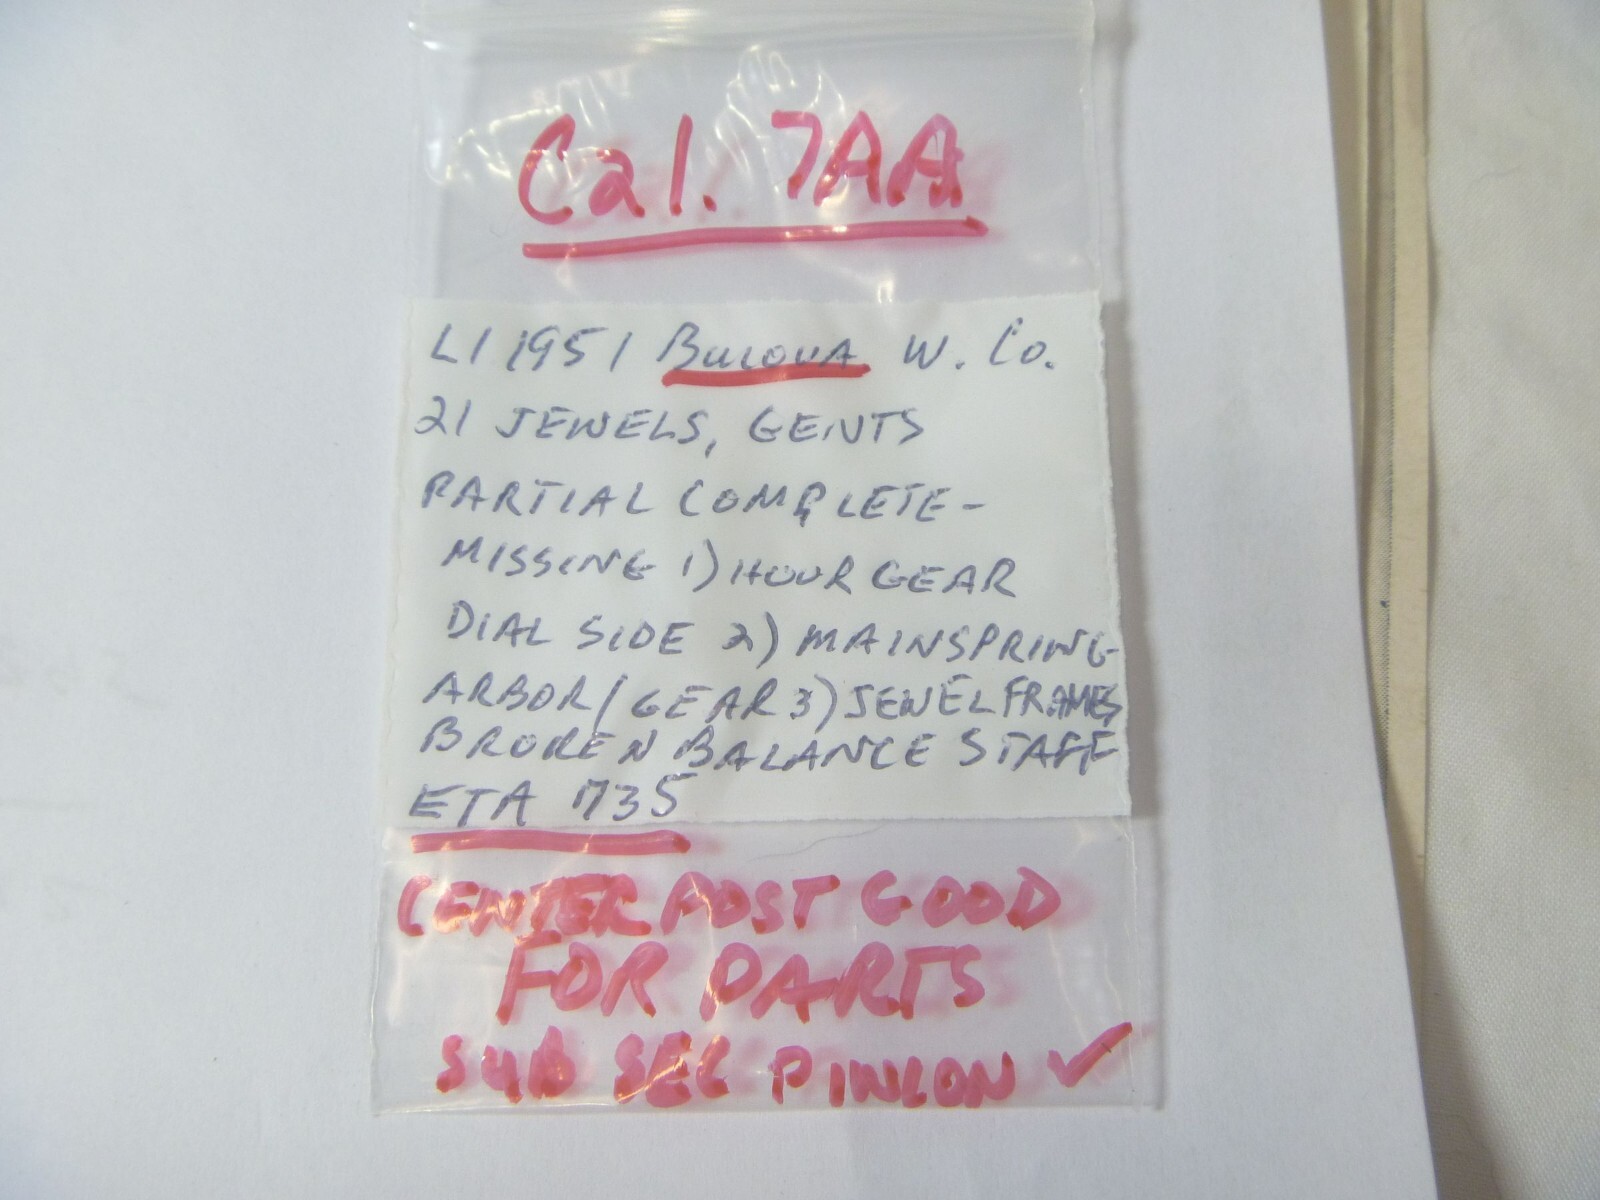 Cal. 7AA
L1 1951 BULOVA W. Co.
21 JEWELS, GENTS
PARTIAL COMPLETE-
MISSING 1) HOUR GEAR
DIAL SIDE 2) MAINSPRING
ARBOR/GEAR 3) JEWEL FRAMES
BROKEN BALANCE STAFF
ETA 735
CENTER POST GOOD
FOR PARTS
SUB SEC PINION ✓